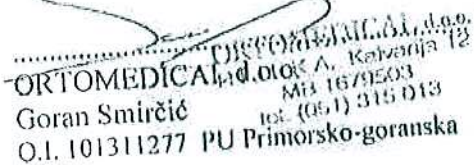 ORTOMEDICAL d.o.o.
Kalvarija 12
MB 1679503
tel. (051) 315 013
ORTOMEDICAL d.o.o.
Goran Smirčić
O.I. 101311277 PU Primorsko-goranska